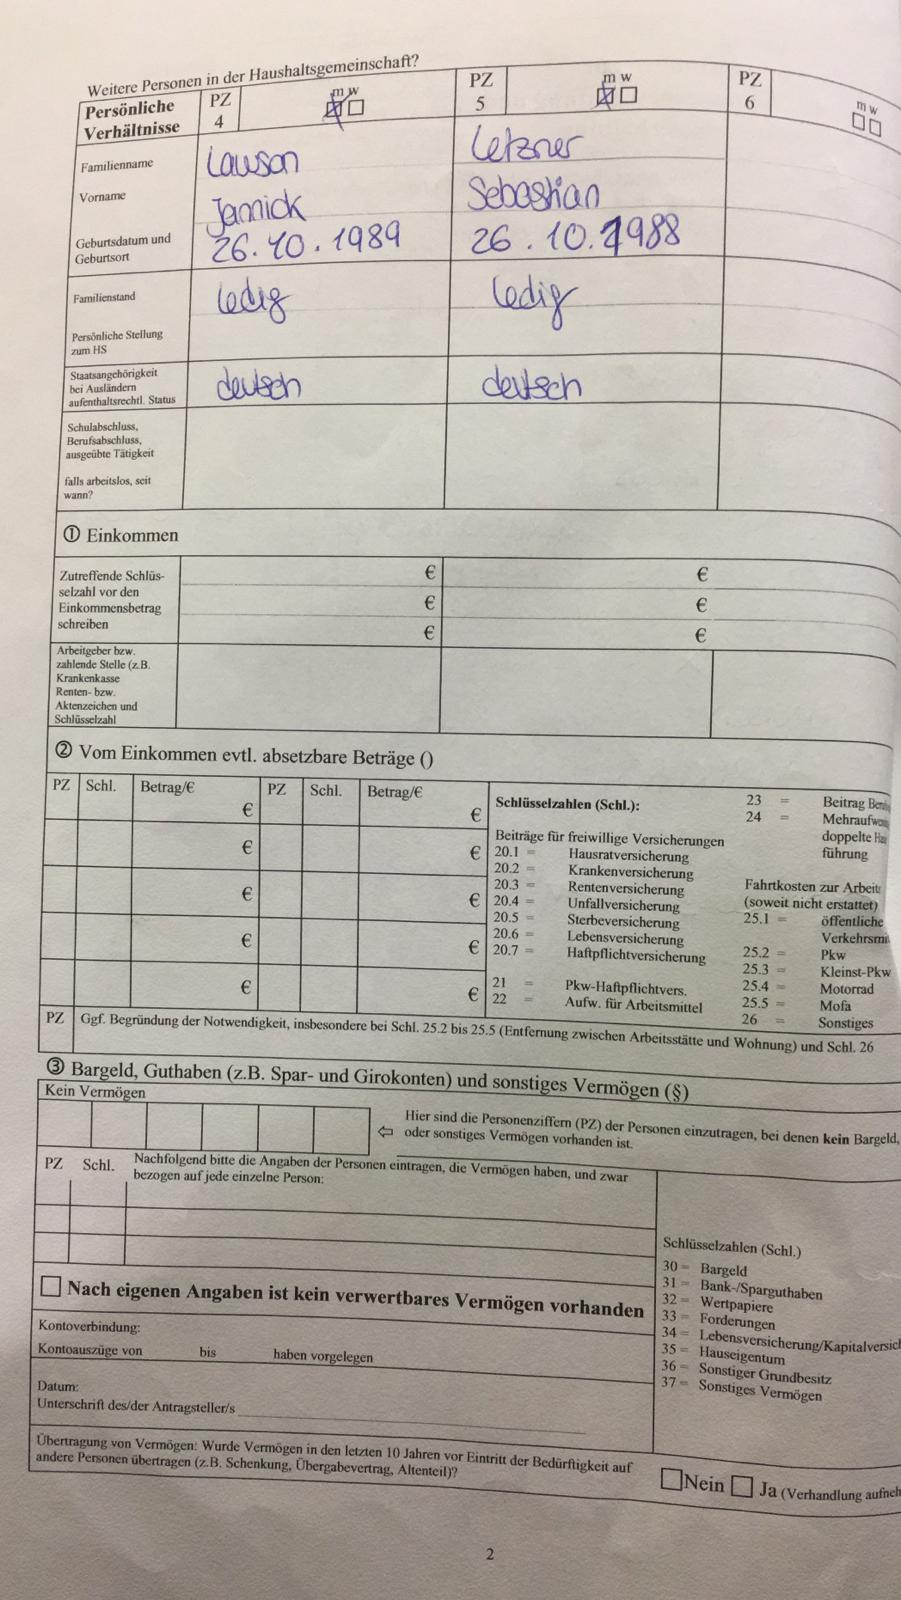 Weitere Personen in der Haushaltsgemeinschaft?
Persönliche Verhältnisse
PZ 4
m w
PZ 5
m w
PZ 6
m w
Familienname
Lawson
Letzner
Vorname
Jannick
Sebastian
Geburtsdatum und
Geburtsort
26.10.1989
26.10.1988
Familienstand
ledig
ledig
Persönliche Stellung
zum HS
Staatsangehörigkeit
bei Ausländern
aufenthaltsrechtl. Status
deutsch
deutsch
Schulabschluss,
Berufsabschluss,
ausgeübte Tätigkeit
falls arbeitslos, seit
wann?
① Einkommen
Zutreffende Schlüs-
selzahl vor den
Einkommensbetrag
schreiben
€ €
€ €
€ €
Arbeitgeber bzw.
zahlende Stelle (z.B.
Krankenkasse
Renten- bzw.
Aktenzeichen und
Schlüsselzahl
② Vom Einkommen evtl. absetzbare Beträge ()
PZ Schl. Betrag/€ PZ Schl. Betrag/€
€ €
€ €
€ €
€ €
€ €
Schlüsselzahlen (Schl.):
Beiträge für freiwillige Versicherungen
20.1 = Hausratversicherung
20.2 = Krankenversicherung
20.3 = Rentenversicherung
20.4 = Unfallversicherung
20.5 = Sterbeversicherung
20.6 = Lebensversicherung
20.7 = Haftpflichtversicherung
21 = Pkw-Haftpflichtvers.
22 = Aufw. für Arbeitsmittel
23 = Beitrag
24 =
doppelte
führung
Fahrtkosten zur Arbeit
(soweit nicht erstattet)
25.1 = öffentliche
Verkehrsmi
25.2 = Pkw
25.3 = Kleinst-Pkw
25.4 = Motorrad
25.5 = Mofa
26 = Sonstiges
PZ Ggf. Begründung der Notwendigkeit, insbesondere bei Schl. 25.2 bis 25.5 (Entfernung zwischen Arbeitsstätte und Wohnung) und Schl. 26
③ Bargeld, Guthaben (z.B. Spar- und Girokonten) und sonstiges Vermögen (§)
Kein Vermögen
⇦ Hier sind die Personenziffern (PZ) der Personen einzutragen, bei denen kein Bargeld,
oder sonstiges Vermögen vorhanden ist.
PZ Schl. Nachfolgend bitte die Angaben der Personen eintragen, die Vermögen haben, und zwar
bezogen auf jede einzelne Person:
Schlüsselzahlen (Schl.)
30 = Bargeld
31 = Bank-/Sparguthaben
32 = Wertpapiere
33 = Forderungen
34 = Lebensversicherung/Kapitalversicl
35 = Hauseigentum
36 = Sonstiger Grundbesitz
37 = Sonstiges Vermögen
Nach eigenen Angaben ist kein verwertbares Vermögen vorhanden
Kontoverbindung:
Kontoauszüge von bis haben vorgelegen
Datum:
Unterschrift des/der Antragsteller/s
Übertragung von Vermögen: Wurde Vermögen in den letzten 10 Jahren vor Eintritt der Bedürftigkeit auf
andere Personen übertragen (z.B. Schenkung, Übergabevertrag, Altenteil)?
Nein Ja (Verhandlung aufneh
2